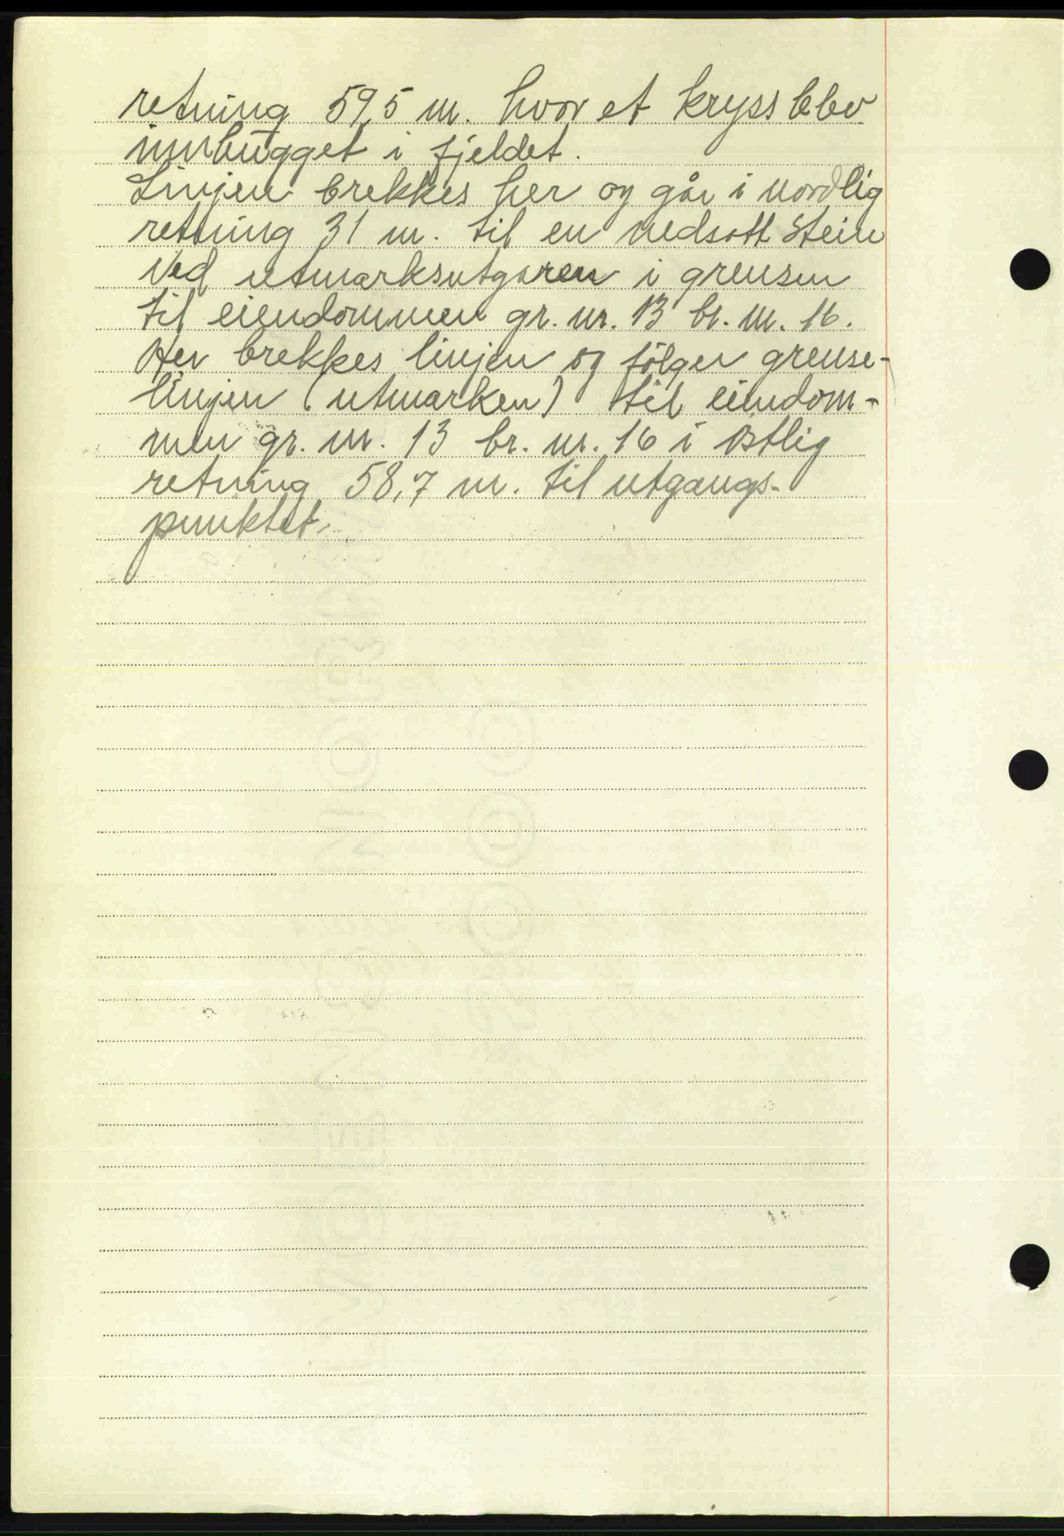 retning 59,5 m. hvor et kryss blev
innhugget i fjeldet.
Linjen brekkes her og går i nordlig
retning 31 m. til en nedsatt stein
ved utmarksutgaren i grensen
til eiendommen gr. nr. 13 br. nr. 16.
Her brekkes linjen og følger grense-
linjen (utmarken) til eiendom-
men gr. nr. 13 br. nr. 16 i østlig
retning 58,7 m. til utgangs-
punktet.